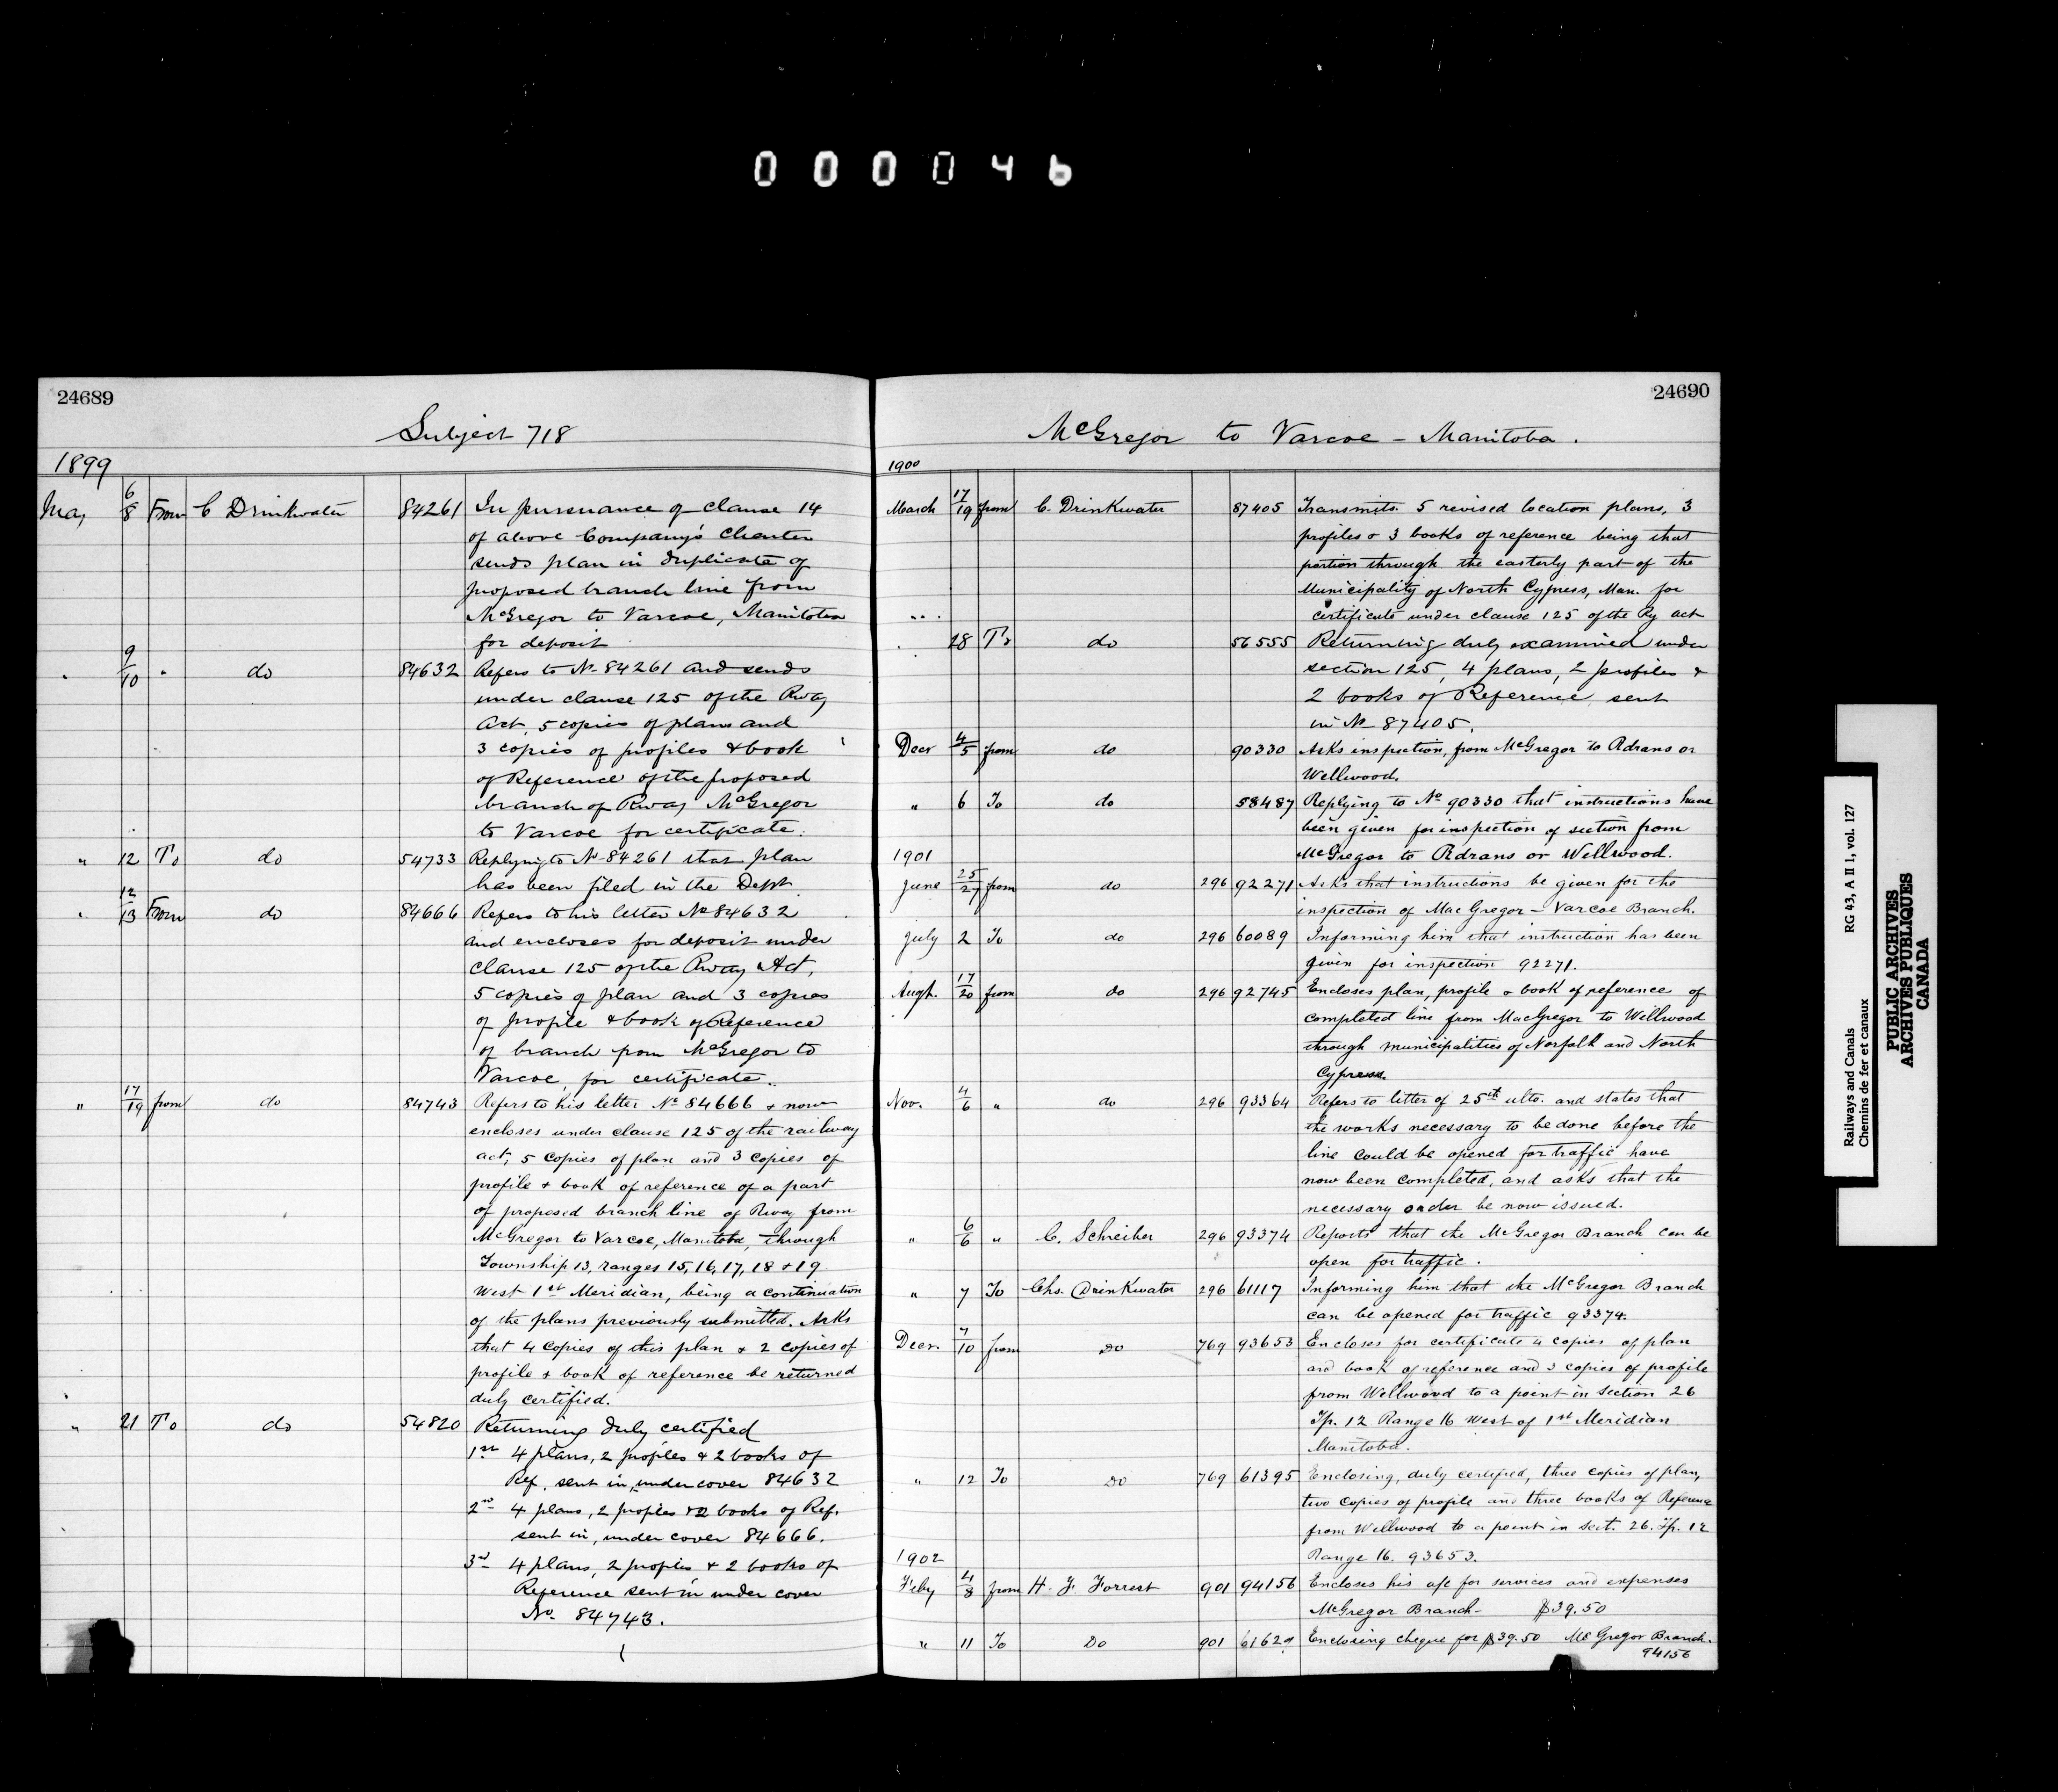 000046
24689
Subject 718
1899
May 6/8 From C Drinkwater 84261 In pursuance of clause 14
of above Company's Charter
sends plan in duplicate of
proposed branch line from
McGregor to Varcoe, Manitoba
for deposit
" 9/10 " do 84632 Refers to No 84261 and sends
under clause 125 of the Rway
Act, 5 copies of plans and
3 copies of profiles & book
of Reference of the proposed
branch of Rway McGregor
to Varcoe for certificate.
" 12 To do 54733 Replying to No 84261 that plan
has been filed in the Dept.
" 12/13 From do 84666 Refers to his letter No 84632
and encloses for deposit under
clause 125 of the Rway Act,
5 copies of plan and 3 copies
of profile & book of Reference
of branch from McGregor to
Varcoe, for certificate.
" 17/19 from do 84743 Refers to his letter No 84666 & now
encloses under clause 125 of the railway
act, 5 copies of plan and 3 copies of
profile & book of reference of a part
of proposed branch line of Rway from
McGregor to Varcoe, Manitoba, through
Township 13, ranges 15, 16, 17, 18 & 19
West 1st Meridian, being a continuation
of the plans previously submitted. Asks
that 4 copies of this plan & 2 copies of
profile & book of reference be returned
duly certified.
" 21 To do 54820 Returning duly certified
1st 4 plans, 2 profiles & 2 books of
Ref. sent in, under cover 84632
2nd 4 plans, 2 profiles & 2 books of Ref.
sent in, under cover 84666.
3rd 4 plans, 2 profiles & 2 books of
Reference sent in under cover
No. 84743.
24690
McGregor to Varcoe – Manitoba.
1900
March 17/19 from C. Drinkwater 87405 Transmits 5 revised location plans, 3
profiles & 3 books of reference being that
portion through the easterly part of the
Municipality of North Cypress, Man. for
certificate under clause 125 of the Ry act
28 To do 56555 Returning duly examined under
section 125, 4 plans, 2 profiles &
2 books of Reference sent
in No 87405.
Decr 4/5 from do 90330 Asks inspection, from McGregor to Adrans or
Wellwood.
" 6 To do 58487 Replying to No 90330 that instructions have
been given for inspection of section from
McGregor to Adrans or Wellwood.
1901
June 25/27 from do 296 92271 Asks that instructions be given for the
inspection of MacGregor – Varcoe Branch.
July 2 To do 296 60089 Informing him that instruction has been
given for inspection 92271.
Augt. 17/20 from do 296 92745 Encloses plan, profile & book of reference of
completed line from MacGregor to Wellwood
through municipalities of Norfolk and North
Cypress.
Nov. 4/6 " do 296 93364 Refers to letter of 25th ulto. and states that
the works necessary to be done before the
line could be opened for traffic have
now been completed, and asks that the
necessary order be now issued.
" 6/6 " C. Schreiber 296 93374 Reports that the McGregor Branch can be
open for traffic.
" 7 To Chs. Drinkwater 296 61117 Informing him that the McGregor Branch
can be opened for traffic 93374.
Decr. 7/10 from Do 769 93653 Encloses for certificate 4 copies of plan
and book of reference and 3 copies of profile
from Wellwood to a point in Section 26
Tp. 12 Range 16 West of 1st Meridian
Manitoba.
" 12 To Do 769 61395 Enclosing, duly certified, three copies of plan,
two copies of profile and three books of Reference
from Wellwood to a point in Sect. 26. Tp. 12
Range 16. 93653.
1902
Feby 4/8 from H. F. Forrest 901 94156 Encloses his a/c for services and expenses
McGregor Branch – $39.50
" 11 To Do 901 Enclosing cheque for $39.50 McGregor Branch.
94156
Railways and Canals RG 43, A II 1, vol. 127
Chemins de fer et canaux
PUBLIC ARCHIVES
ARCHIVES PUBLIQUES
CANADA